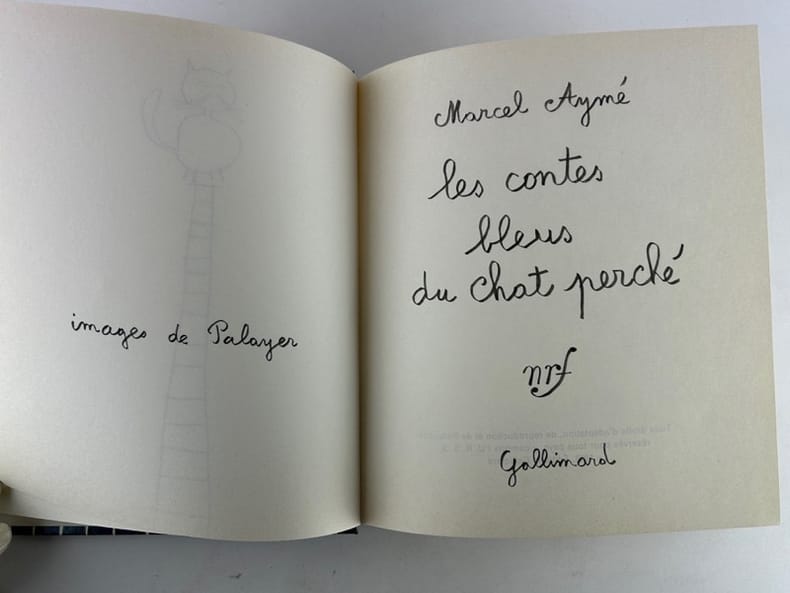 images de Palayer
Marcel Aymé
les contes
bleus
du chat perché
nrf
Gallimard